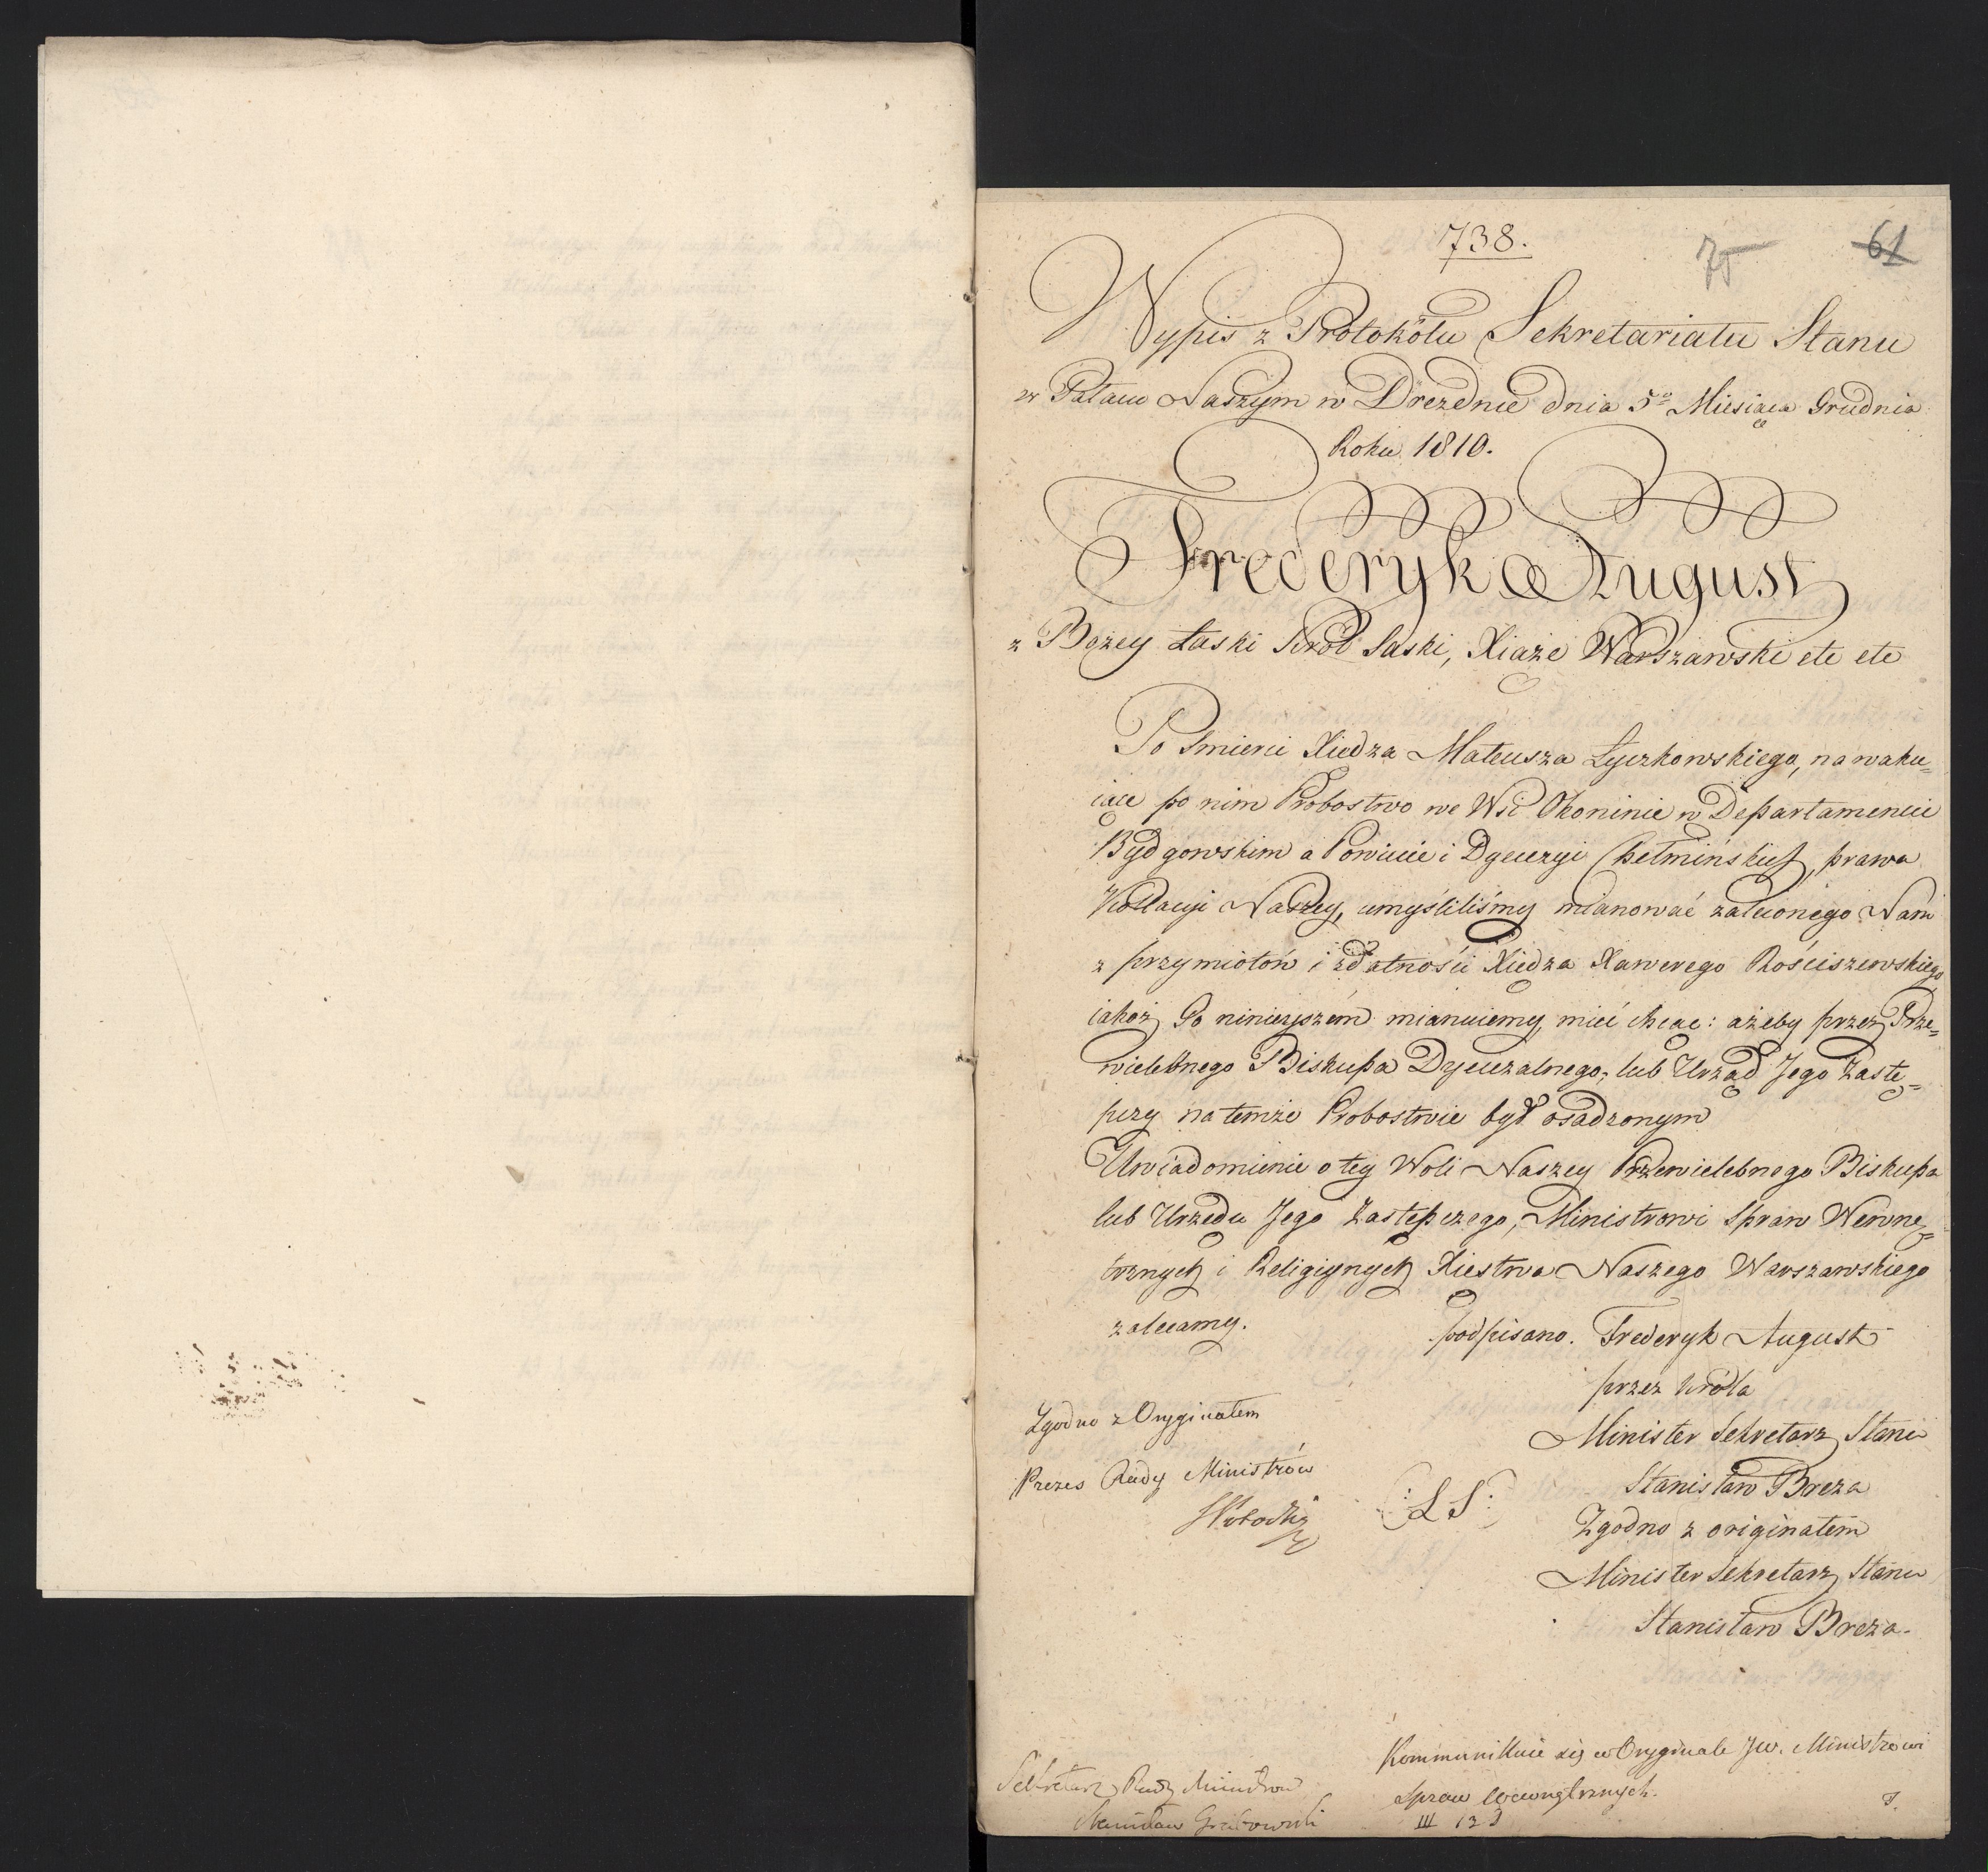 738.
75
61
Wypis z Protokółu Sekretariatu Stanu
w Pałacu Naszym w Dreznie dnia 5º Miesiąca Grudnia
Roku 1810.
Frederyk August
z Bożey Łaski Król Saski, Xiąże Warszawski etc etc
Po Smierci Xiędza Mateusza Łyczkowskiego, na waku=
iące po nim Probostwo we Wsi Okoninie w Departamencie
Bydgowskim a Powiecie i Dyecezyi Chełmińskiej, prawa
Kollacyi Naszey, umyśliliśmy mianować zaleconego Nam
z przymiotów i zdatności Xiędza Xawerego Rościszewskiego
iakoż Go ninieyszém mianuiemy, mieć chcąc: ażeby przez Prze=
wielebnego Biskupa Dyecezalnego, lub Urząd Jego Zastę=
pczy na temże Probostwie był osadzonym
Uwiadomienie o tey Woli Naszey Przewielebnego Biskupa
lub Urzędu Jego Zastępczego, Ministrowi Spraw Wewnę=
trznych i Religiynych Xięstwa Naszego Warszawskiego
zalecamy.
podpisano. Frederyk August
przez Króla
Minister Sekretarz Stanu
Stanisław Breza
Zgodno z originałem
Minister Sekretarz Stanu
Stanisław Breza.
Zgodno z Oryginałem
Prezes Rady Ministrów
(:L S:)
Sekretarz Rady Ministrow
Stanisław Grabowski
Kommunikuie się w Oryginale JW. Ministrowi
Spraw Wewnętrznych.
III 123